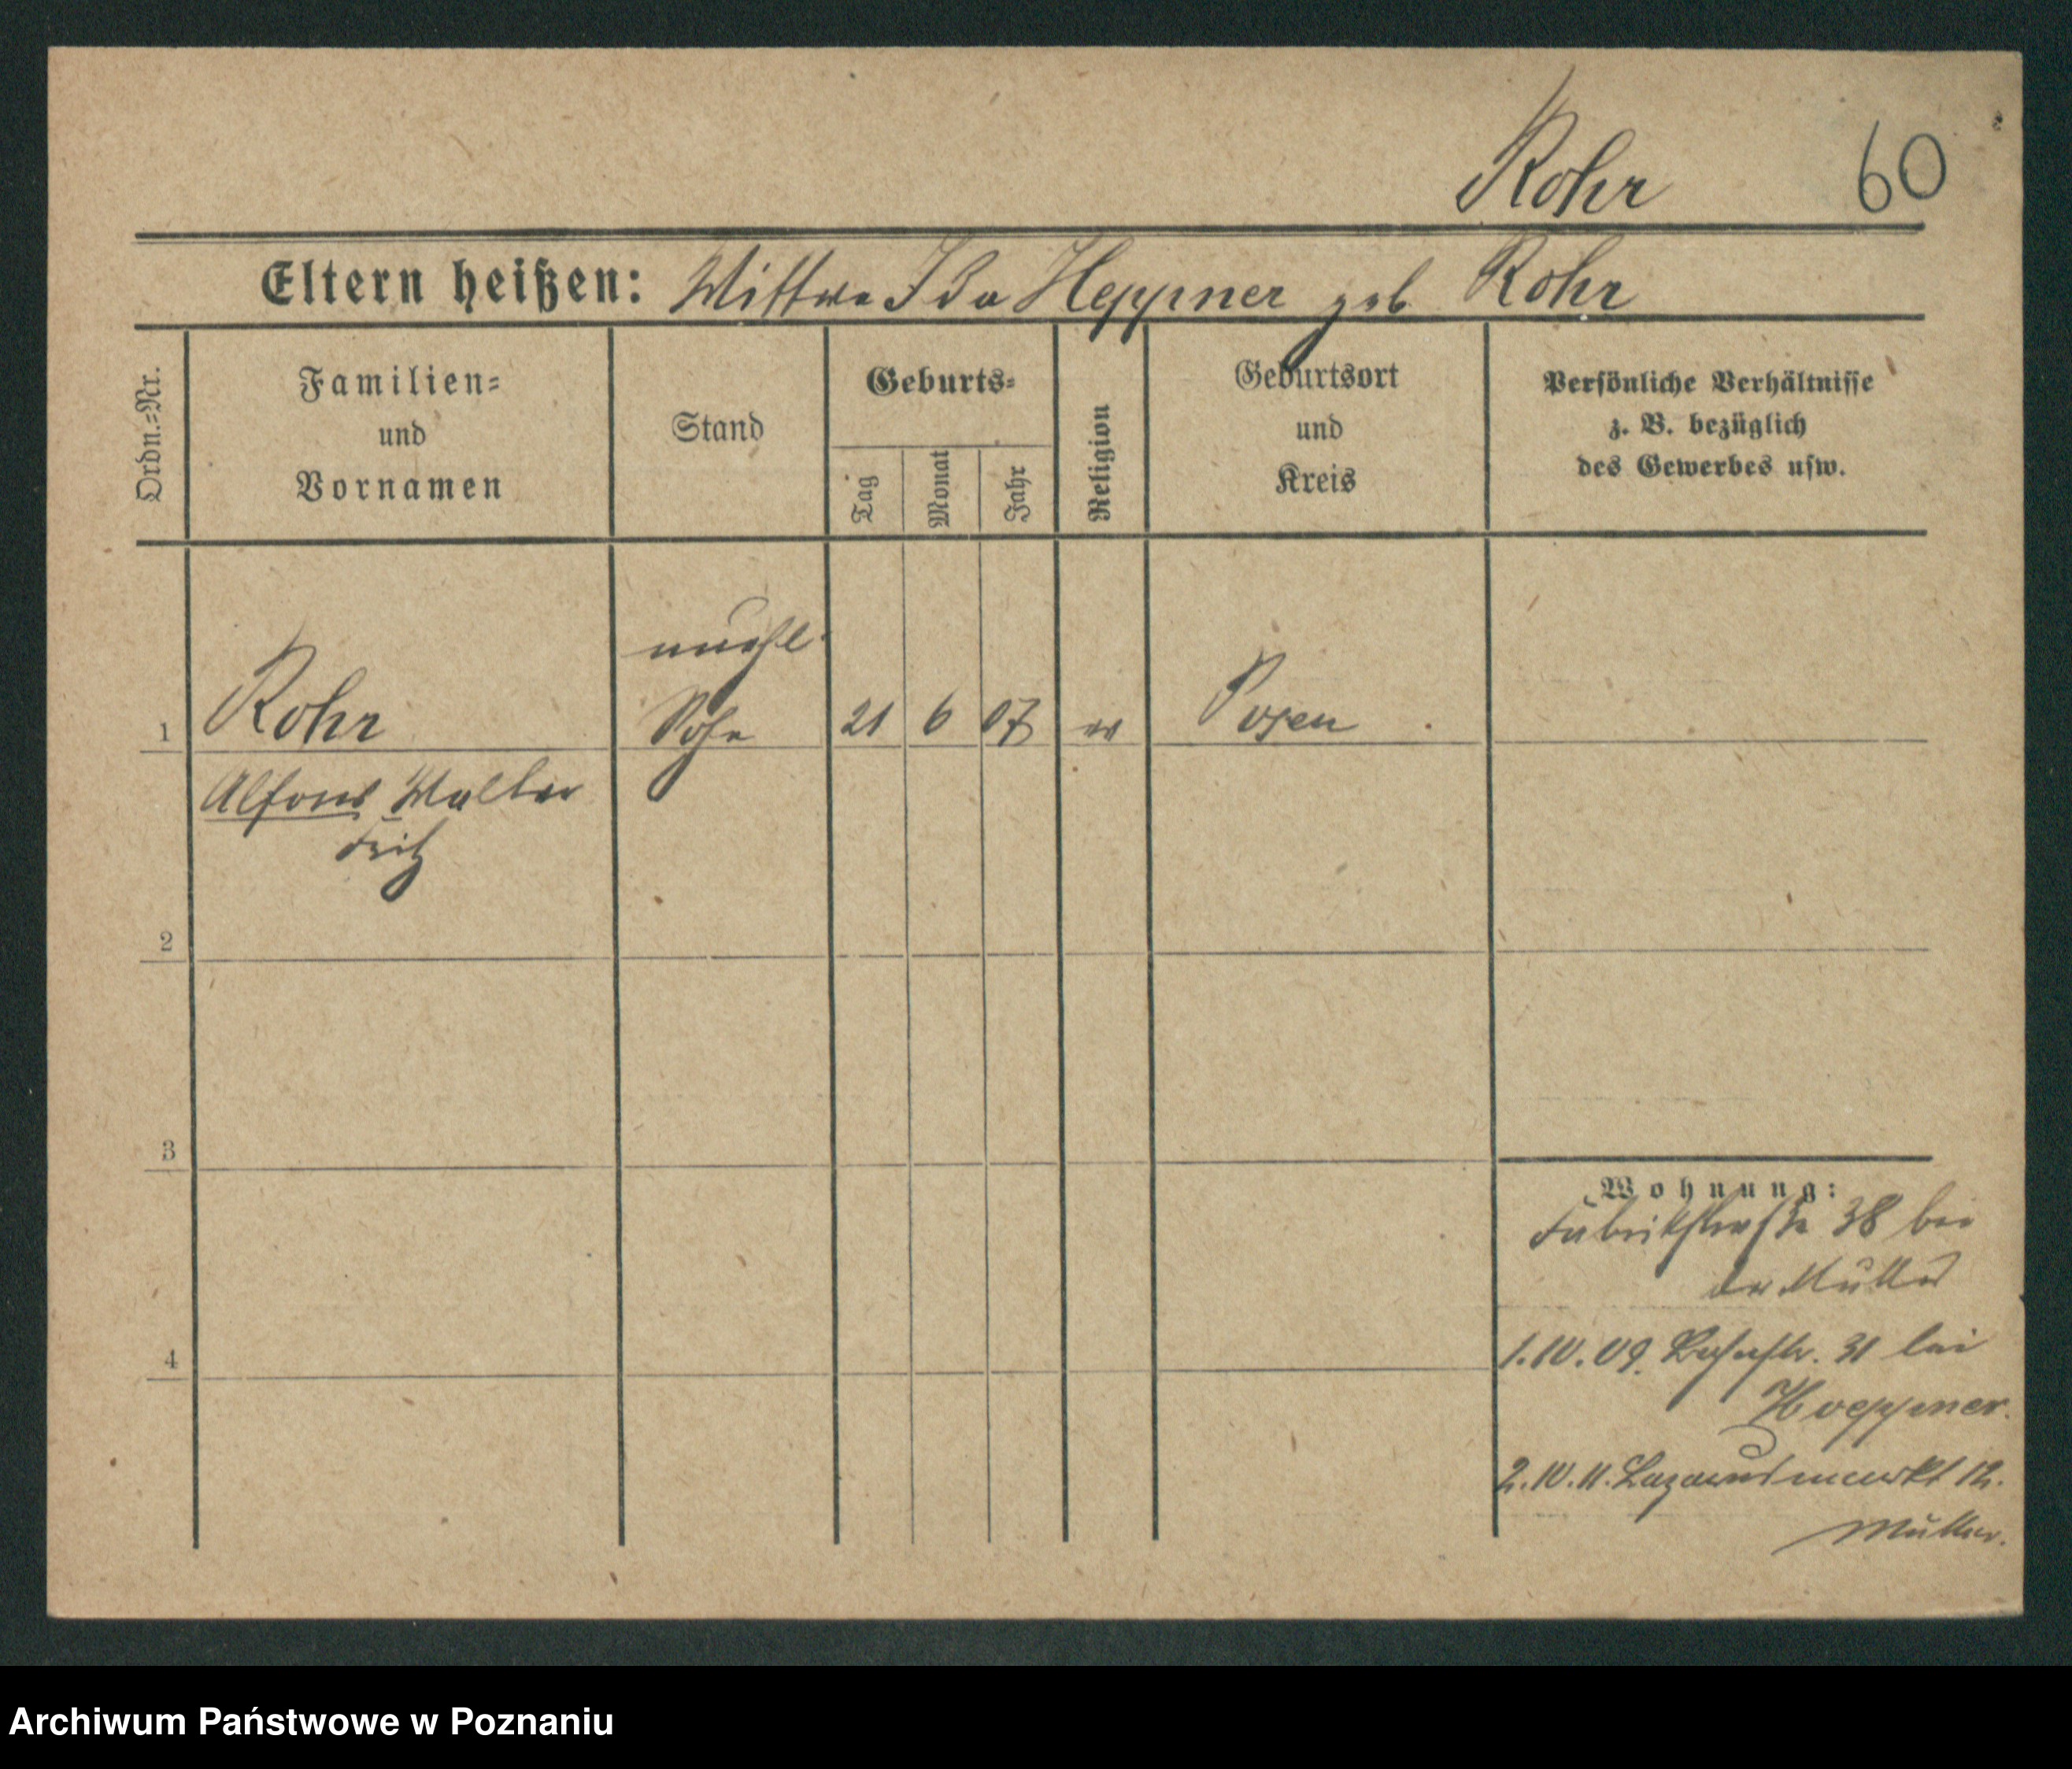 Rohr 60
Eltern heißen: Wittwe Ida Heppner geb Rohr
Ordn.=Nr.
Familien=
und
Vornamen
Stand
Geburts=
Tag
Monat
Jahr
Religion
Geburtsort
und
Kreis
Persönliche Verhältnisse
z. B. bezüglich
des Gewerbes usw.
unehl.
1 Rohr Sohn 21 6 07 ev Posen
Alfons Walter
Fritz
2
3
4
Wohnung:
Fabrikstraße 38 bei
der Mutter
1.10.09. 31 bei
Hoeppner.
2.10.11. Lazarusmarkt 12.
Mutter.
Archiwum Państwowe w Poznaniu